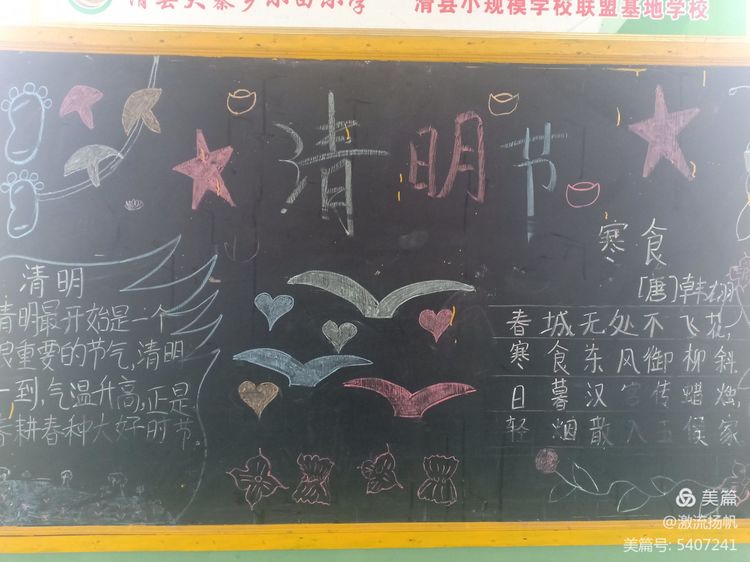 清县小规模学校联盟基地学校
清明节
清明
清明最开始是一个
很重要的节气,清明
一到,气温升高,正是
春耕春种大好时节。
寒食
[唐]韩翃
春城无处不飞花,
寒食东风御柳斜.
日暮汉宫传蜡烛,
轻烟散入五侯家
美篇
@激流扬帆
美篇号: 5407241